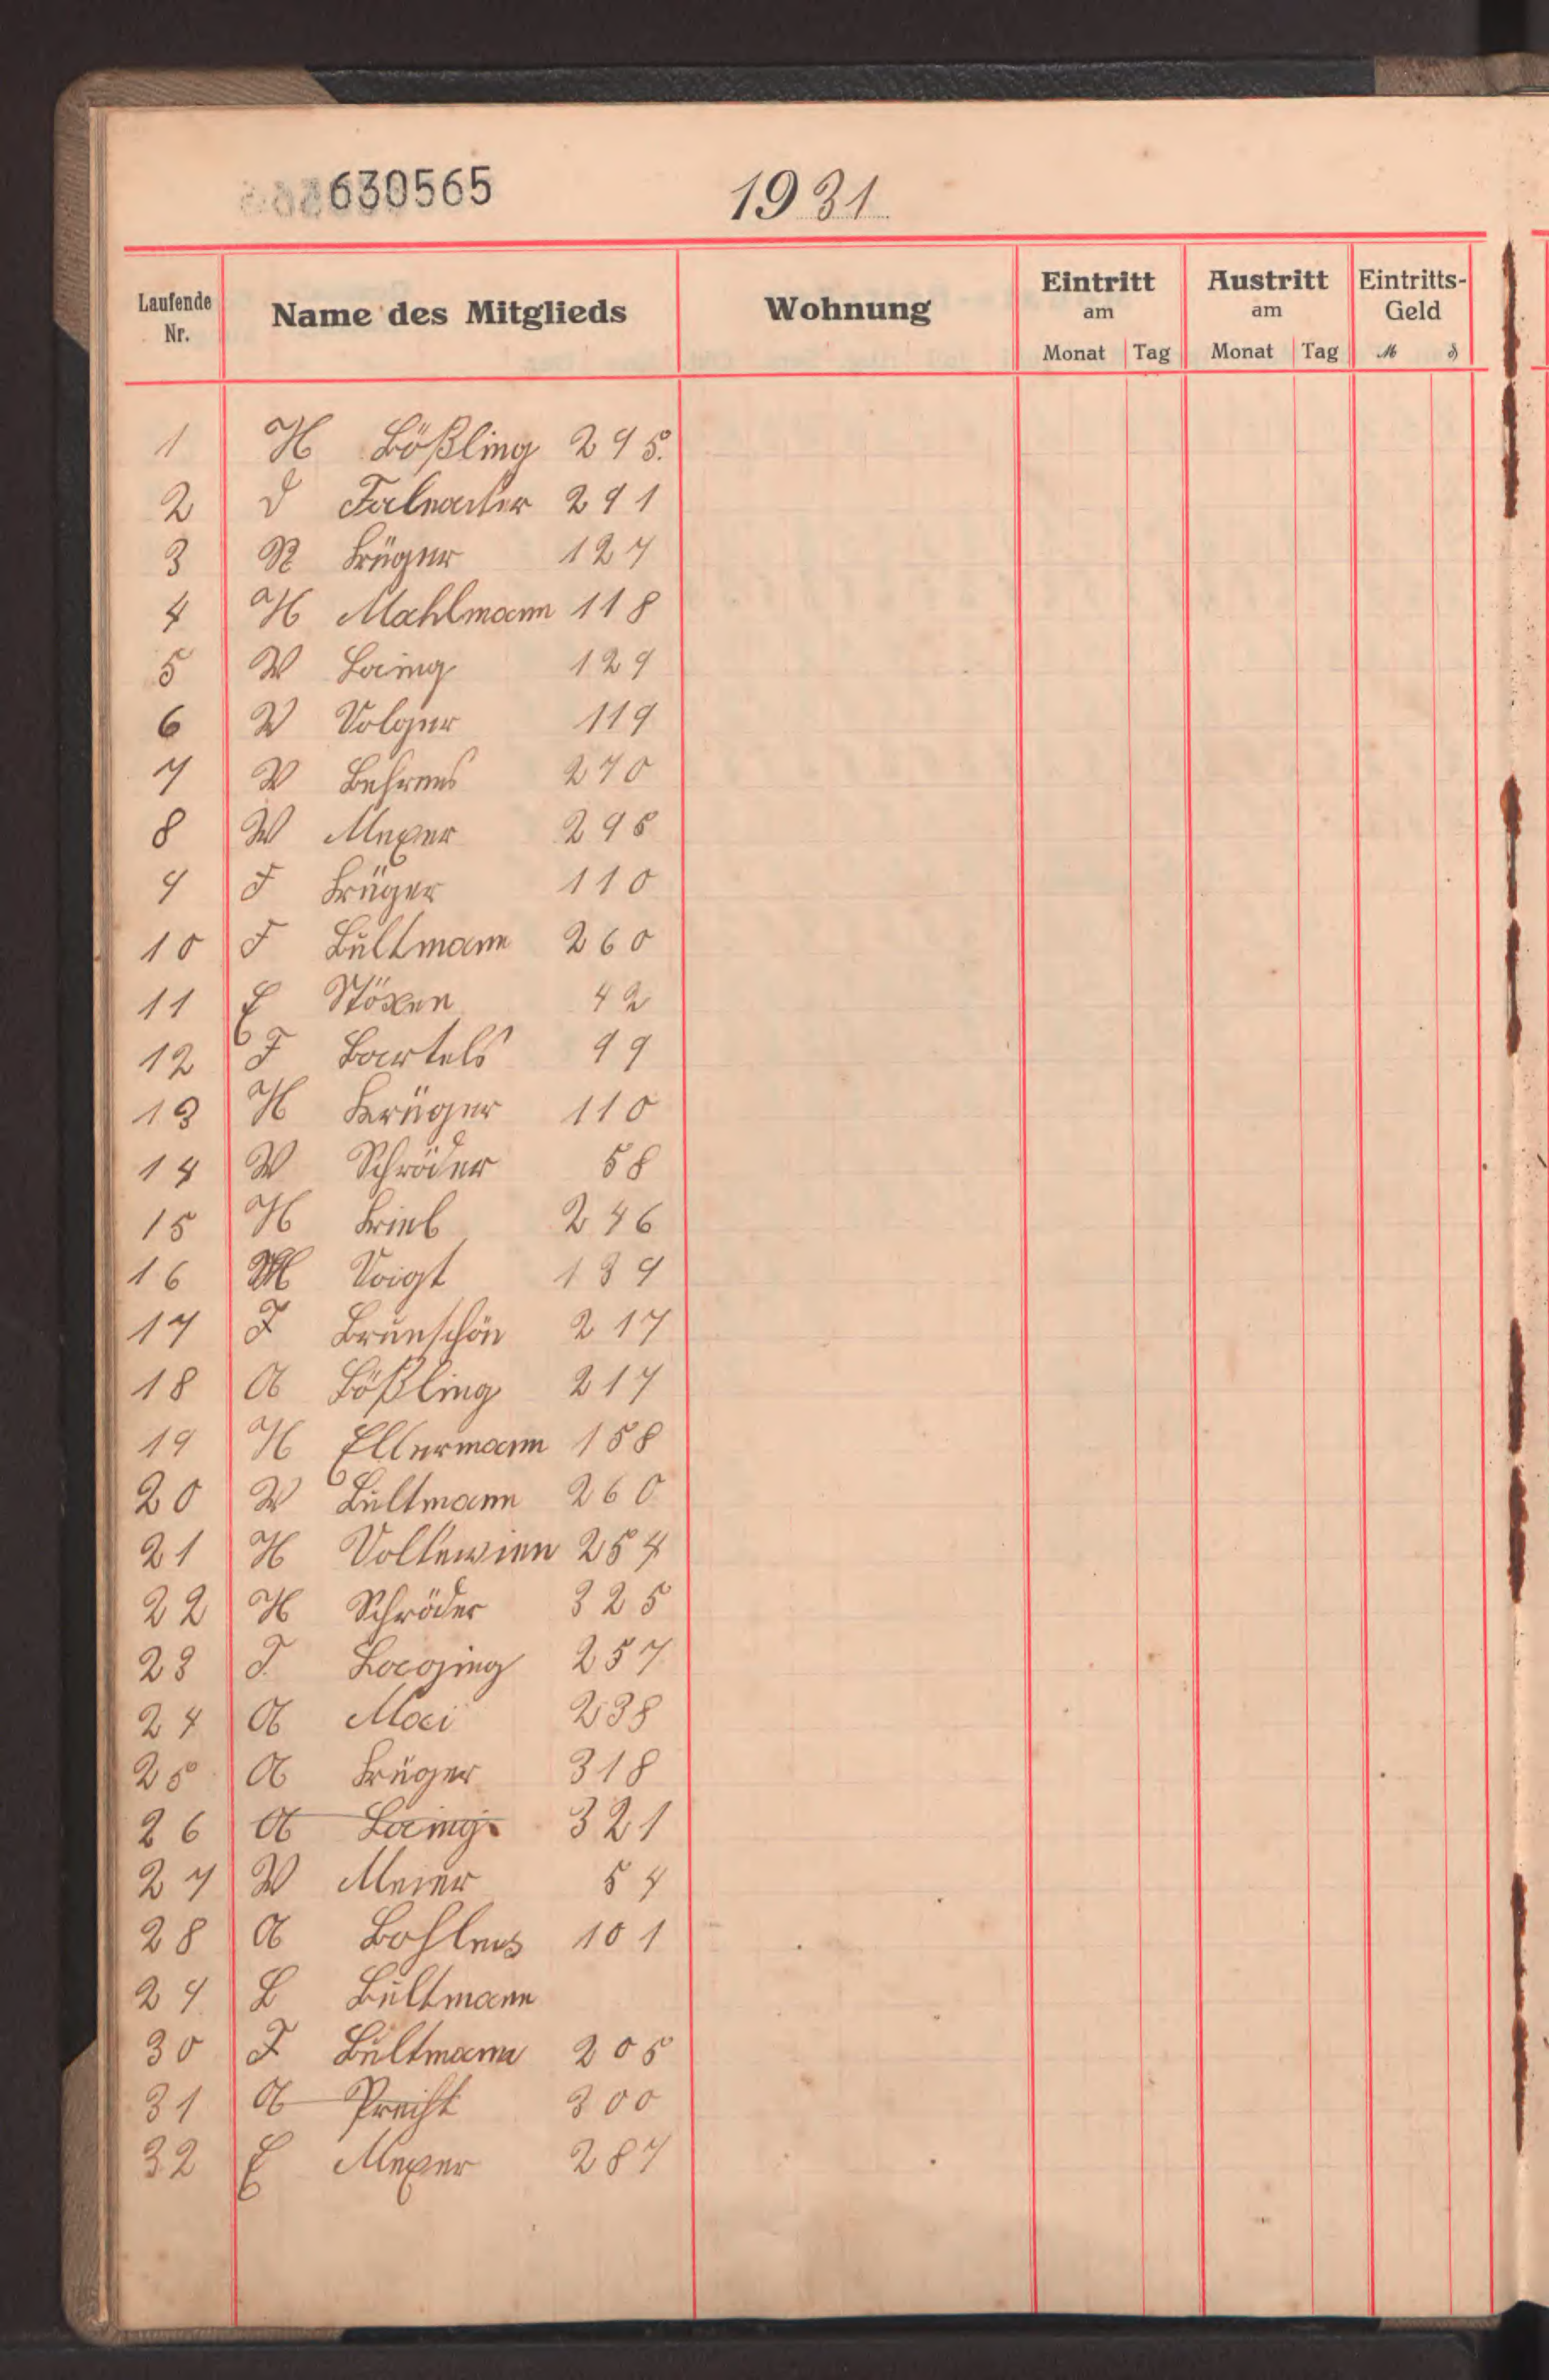 630565
1931
Laufende Nr.
Name des Mitglieds
Wohnung
Eintritt am Monat Tag
Austritt am Monat Tag
Eintritts-Geld M ₰
1 H Lößling 295.
2 291
3 R Krüger 127
4 H Mahlmann 118
5 W Laing 129
6 W Volger 119
7 W Behrens 270
8 W Meyer 295
9 F Krüger 110
10 F Bültmann 260
11 E Stöxen 42
12 F Bartels 99
13 H Krüger 110
14 W Schröder 58
15 H 246
16 Voigt 139
17 F Brunschön 217
18 A Lößling 217
19 H Ellermann 158
20 W Bültmann 260
21 H 254
22 H Schröder 325
23 F 257
24 A Mai 238
25 A Krüger 318
26 A Laing 321
27 W Meier 54
28 A Bohlens 101
29 L Bültmann
30 F Bültmann 205
31 A Precht 300
32 E Meyer 287